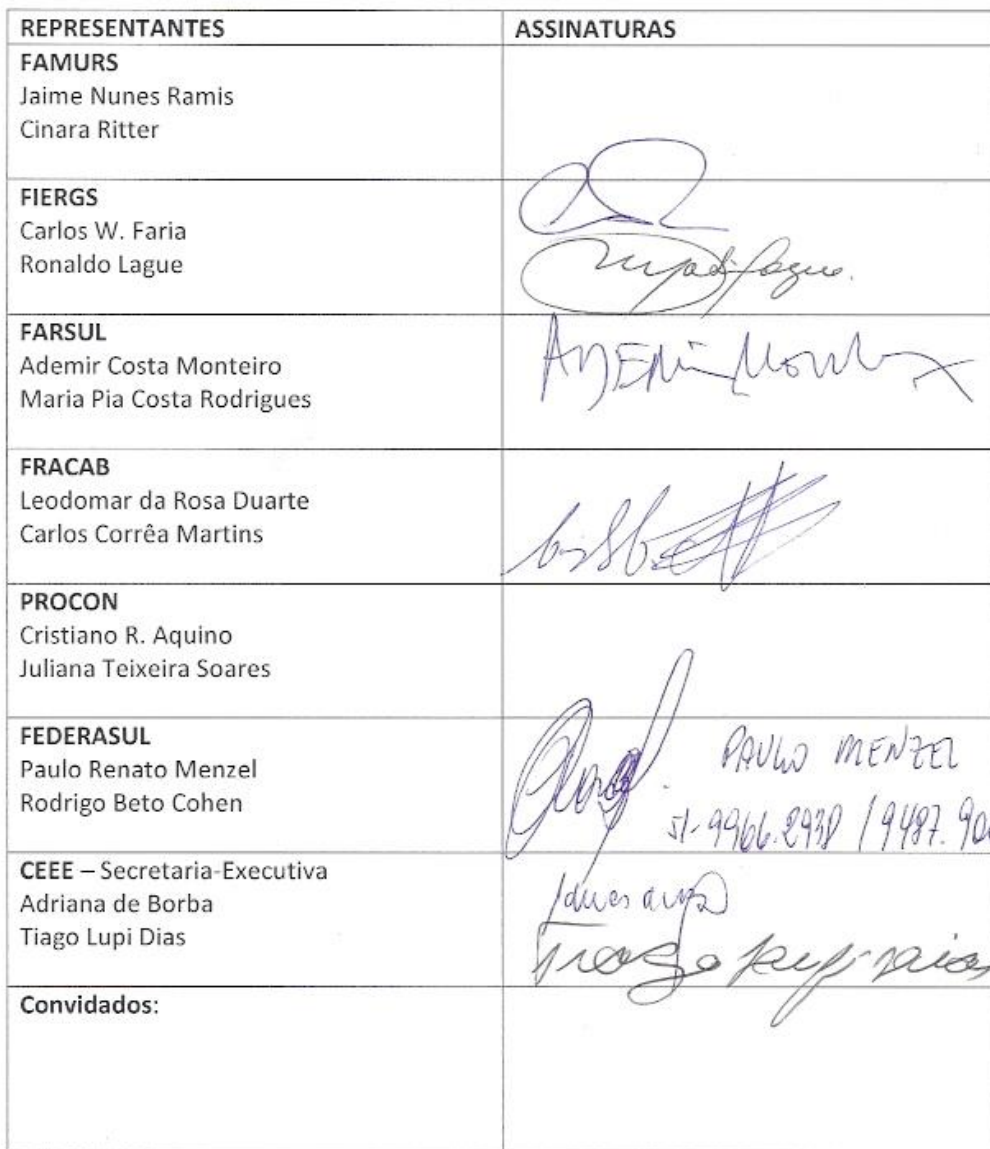 REPRESENTANTES ASSINATURAS
FAMURS
Jaime Nunes Ramis
Cinara Ritter
FIERGS
Carlos W. Faria
Ronaldo Lague
FARSUL
Ademir Costa Monteiro
Maria Pia Costa Rodrigues
FRACAB
Leodomar da Rosa Duarte
Carlos Corrêa Martins
PROCON
Cristiano R. Aquino
Juliana Teixeira Soares
FEDERASUL
Paulo Renato Menzel
Rodrigo Beto Cohen
PAULO MENZEL
CEEE – Secretaria-Executiva
Adriana de Borba
Tiago Lupi Dias
Convidados: